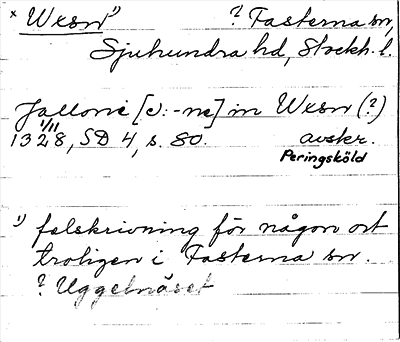 x Wxsn 1) ? Fasterna sn,
Sjuhundra hd, Stockh. l.
Jallone [d: -ne] in Wxsn (?)
1328 1/11, SD 4, s. 80. avskr.
Peringsköld
1) felskrivning för någon ort
troligen i Fasterna sn.
? Uggelnäset